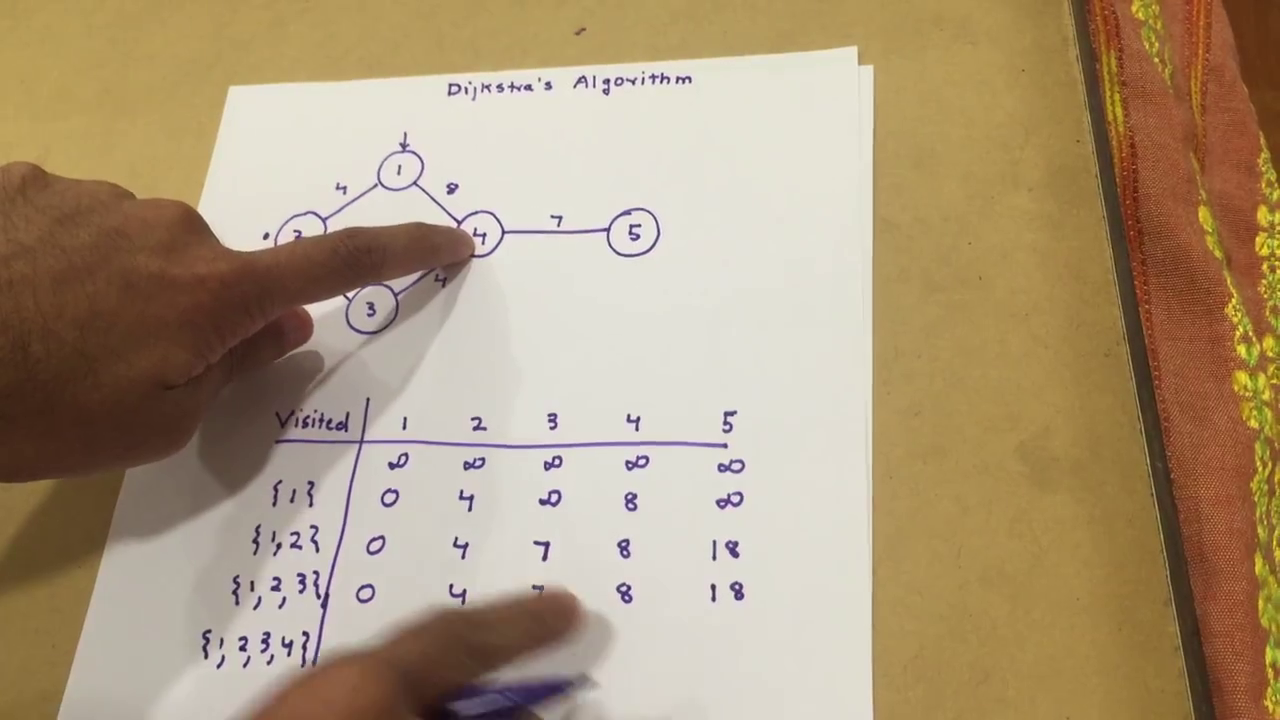 Dijkstra's Algorithm
1
4 8
4 7 5
4
3
Visited 1 2 3 4 5
∞ ∞ ∞ ∞ ∞
{1} 0 4 ∞ 8 ∞
{1,2} 0 4 7 8 18
{1,2,3} 0 4 8 18
{1,2,3,4}